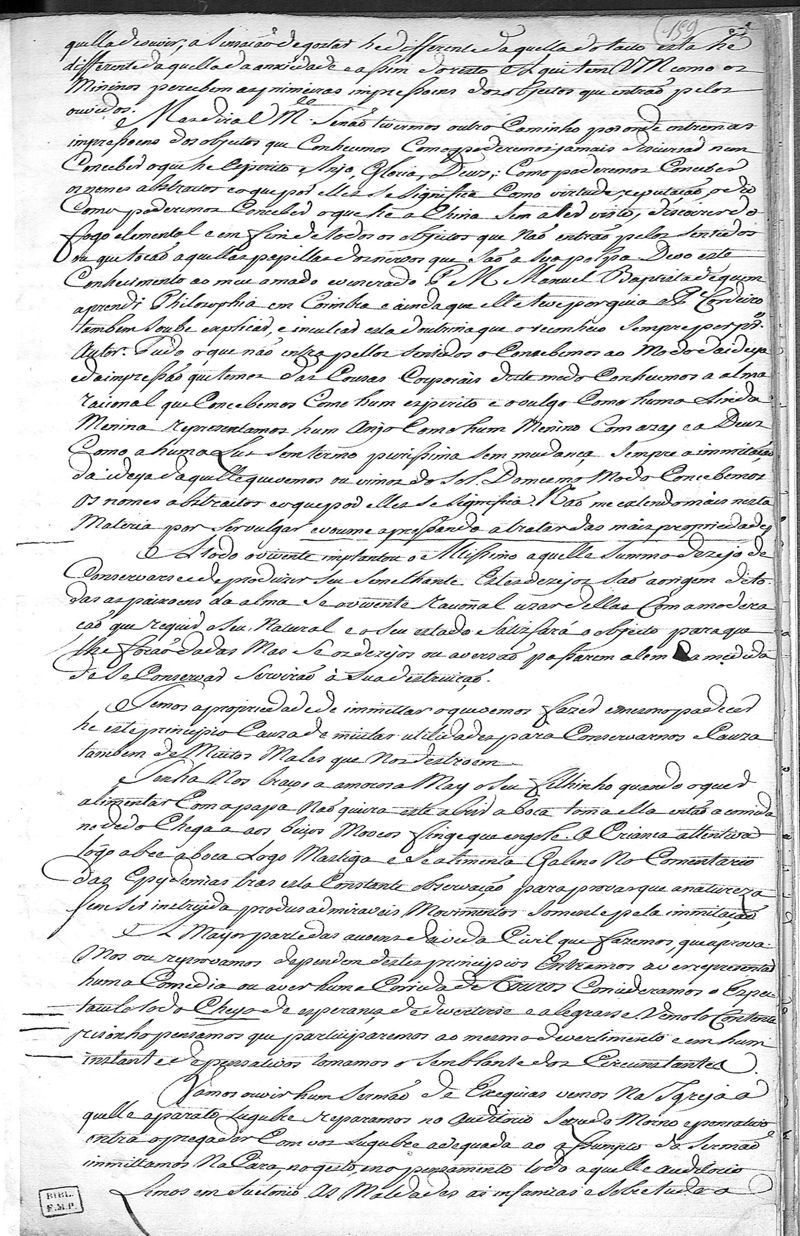 159
quella de ouvir; a sensação de gostar he differente daquella do tacto esta he
differente daquella da anxiedade e assim do resto. Aqui tem V M como os
Mininos percebem as primeiras impressoens dos objectos que entrão pelos
ouvidos.
Mas dirá V M.ce Se não tivermos outro Caminho por onde entrem as
impressoens dos objectos que Conhecemos Como poderemos jamais discursar nem
Conceber o que he Espirito, Anjo, Gloria, Deus; Como poderemos Conceber
os nomes abstractos e o que por elles se significa Como virtude reputação, pe do
Como poderemos Conceber o que he a China sem a ter visto, discorrer do
fogo elemental e em fim de todos os objectos que não entrão pelos sentidos
ou que tocão aquellas papillas dos nervos que são a sua polpa Devo este
Conhecimento ao meu amado e venerado P. M. Manuel Baptista de quem
aprendi Philosophia em Coimbra e ainda que elle tive por guia a P.e Cordeiro
tambem soube explicar, e inculcar esta doutrina que o reconheço sempre por pr.o
Autor. Tudo o que não entra pellos sentidos o Concebemos ao Modo da ideya
e da impressão que temos das Cousas Corporais deste modo Conhecemos a alma
racional que Concebemos Como hum espirito e o vulgo Como huma linda
Menina representamos hum Anjo Como hum Menino Com azas e a Deus
Como a huma Luz sem termo purissima sem mudança sempre a immitação
da ideya daquillo que vemos ou vimos do Sol. Do mesmo Modo Concebemos
os nomes abstractos e o que por elles se significa. Não me estendo mais nesta
Materia por ser vulgar e vou me apressando a tratar das mais propriedades
A todo o vivente implantou o Altissimo aquelle summo dezejo de
Conservarse e de produzir seu semelhante. Estes dezejos são a origem de to
das as paixoens da alma se o vivente racional uzar dellas Com a modera
ção que requer o seu Natural e o seu estado satisfará o objecto para que
lhe forão dadas Mas se os dezejos ou aversão passarem alem da medida
de se Conservar servirão à sua destruição.
Temos a propriedade de immittar o que vemos fazer e mesmo padecer
he este principio Cauza de muitas utilidades para Conservarnos e Cauza
tambem de Muitos Males que Nos destroem
Tenha Nos braços a amoroza May o seu filhinho quando o quer
alimentar Com a papa Não quira este abrir a boca toma ella então a comida
no dedo Chega a aos beiços Move os finge que engole A Criança attentiva
logo abre a boca Logo Mastiga e se alimenta Galeno No Comentario
das Epydemias tras esta Constante observação para provar que a natureza
sem ser instruida produs admiraveis Movimentos somente pela immitação
A Mayor parte das acoens da vida Civil que fazemos, que aprova
Mos ou reprovamos dependem destes principios Entramos a ver representar
huma Comedia ou a ver huma Corrida de Touros Consideramos o Espec
taculo todo Cheyo de esperança de divertirse e alegrarse Vemolo Contente
risonho pensamos que participaremos ao mesmo divertimento e em hum
instante de pensativos tomamos o semblante dos Circunstantes.
Vamos ouvir hum Sermão de Exequias vemos Na Igreja a
quelle aparato lugubre reparamos no Auditorio sezudo Morno e pensativo
entra o pregador Com vos lugubre adequada ao assumpto do Sermão
immittamos Na Cara, no gesto, e no pensamento todo aquelle auditorio
Lemos em Suetonio As Maldades as infamias e sobre tudo a
BIBL.
F.M.P.